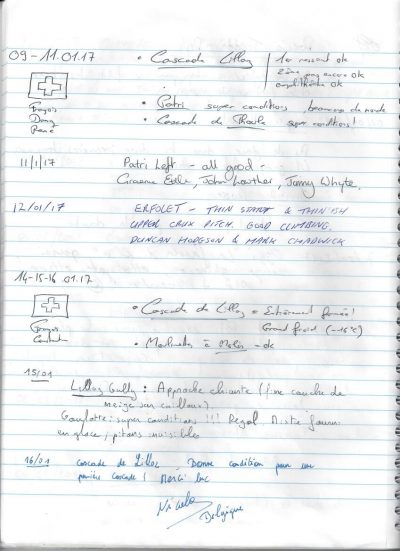 09-11.01.17
• Cascade Lillaz
1er ressaut ok
2ème pas encore ok
amphithéatre ok
• Patri super conditions, beaucoup de monde
• Cascade de super conditions!
François
Dany
René
11/1/17 Patri Left - all good -
Graeme John Lowther, Jonny Whyte.
12/01/17 ERFOLET - THIN START & THIN ISH
UPPER CRUX PITCH. GOOD CLIMBING.
DUNCAN HODGSON & MARK CHADWICK
14-15-16 01.17
• Cascade de Lillaz = Entièrement formée!
Grand froid (-15°C)
François
• à - ok
15/01
Lillaz Gully : Approche chiante (fine couche de
neige sur cailloux).
Goulotte: super conditions !!! Regal
en glace, pitons
16/01 cascade de Lillaz, Bonne condition pour une
première cascade! Merci Luc
Nicolas
Belgique